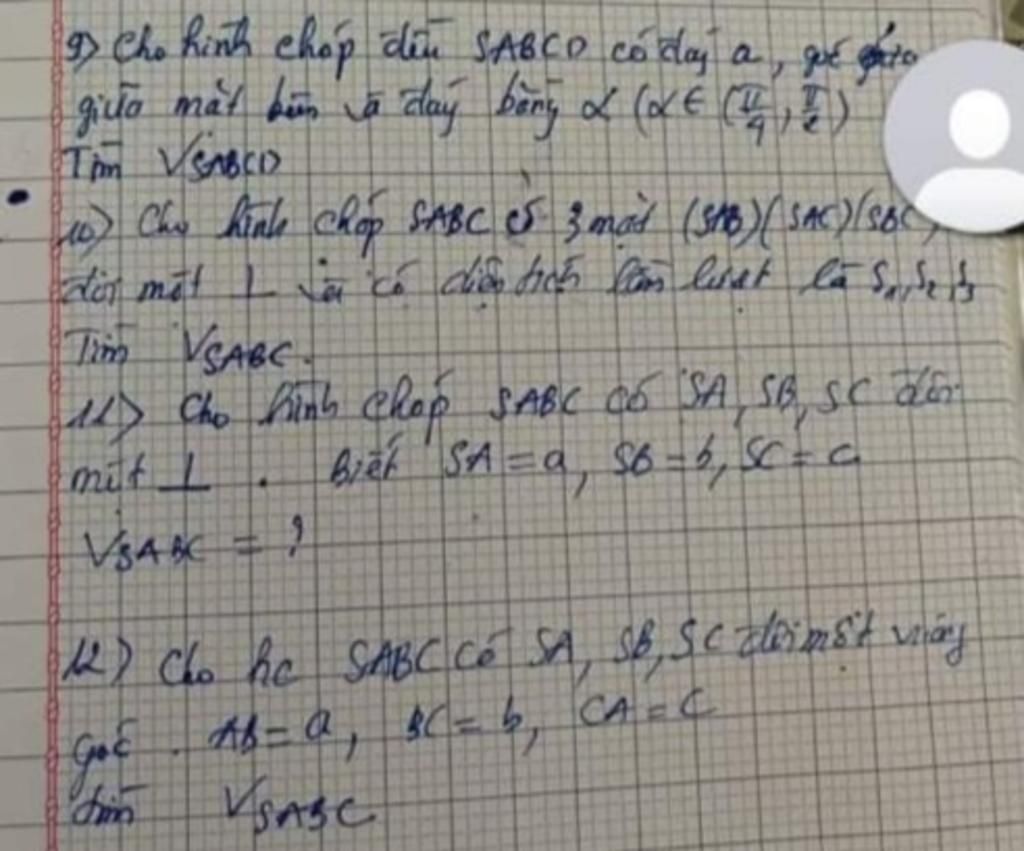 9) Cho hình chóp đều SABCD có đáy a, góc
giữa mặt bên và đáy bằng α (α ∈ (π/4, π/2)
Tìm VSABCD
10) Cho hình chóp SABC có 3 mặt (SAB)(SAC)(SBC
đôi một ⊥ và có diện tích lần lượt là S₁, S₂, S₃
Tìm VSABC.
11) Cho hình chóp SABC có SA, SB, SC đôi
một ⊥. Biết SA = a, SB = b, SC = c
VSABC = ?
12) Cho hc SABC có SA, SB, SC đôi một vuông
góc. AB = a, BC = b, CA = c
tìm VSABC